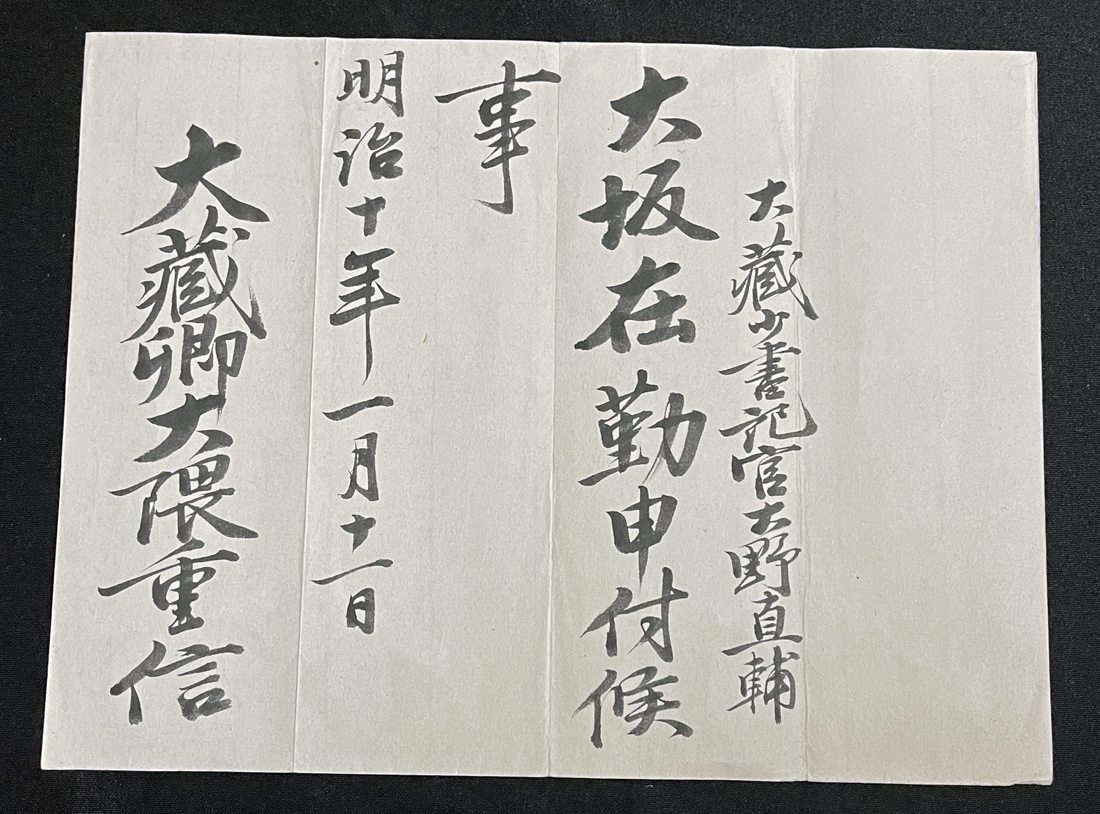 大藏少書記官大野直輔
大坂在勤申付候
事
明治十年一月十一日
大藏卿大隈重信